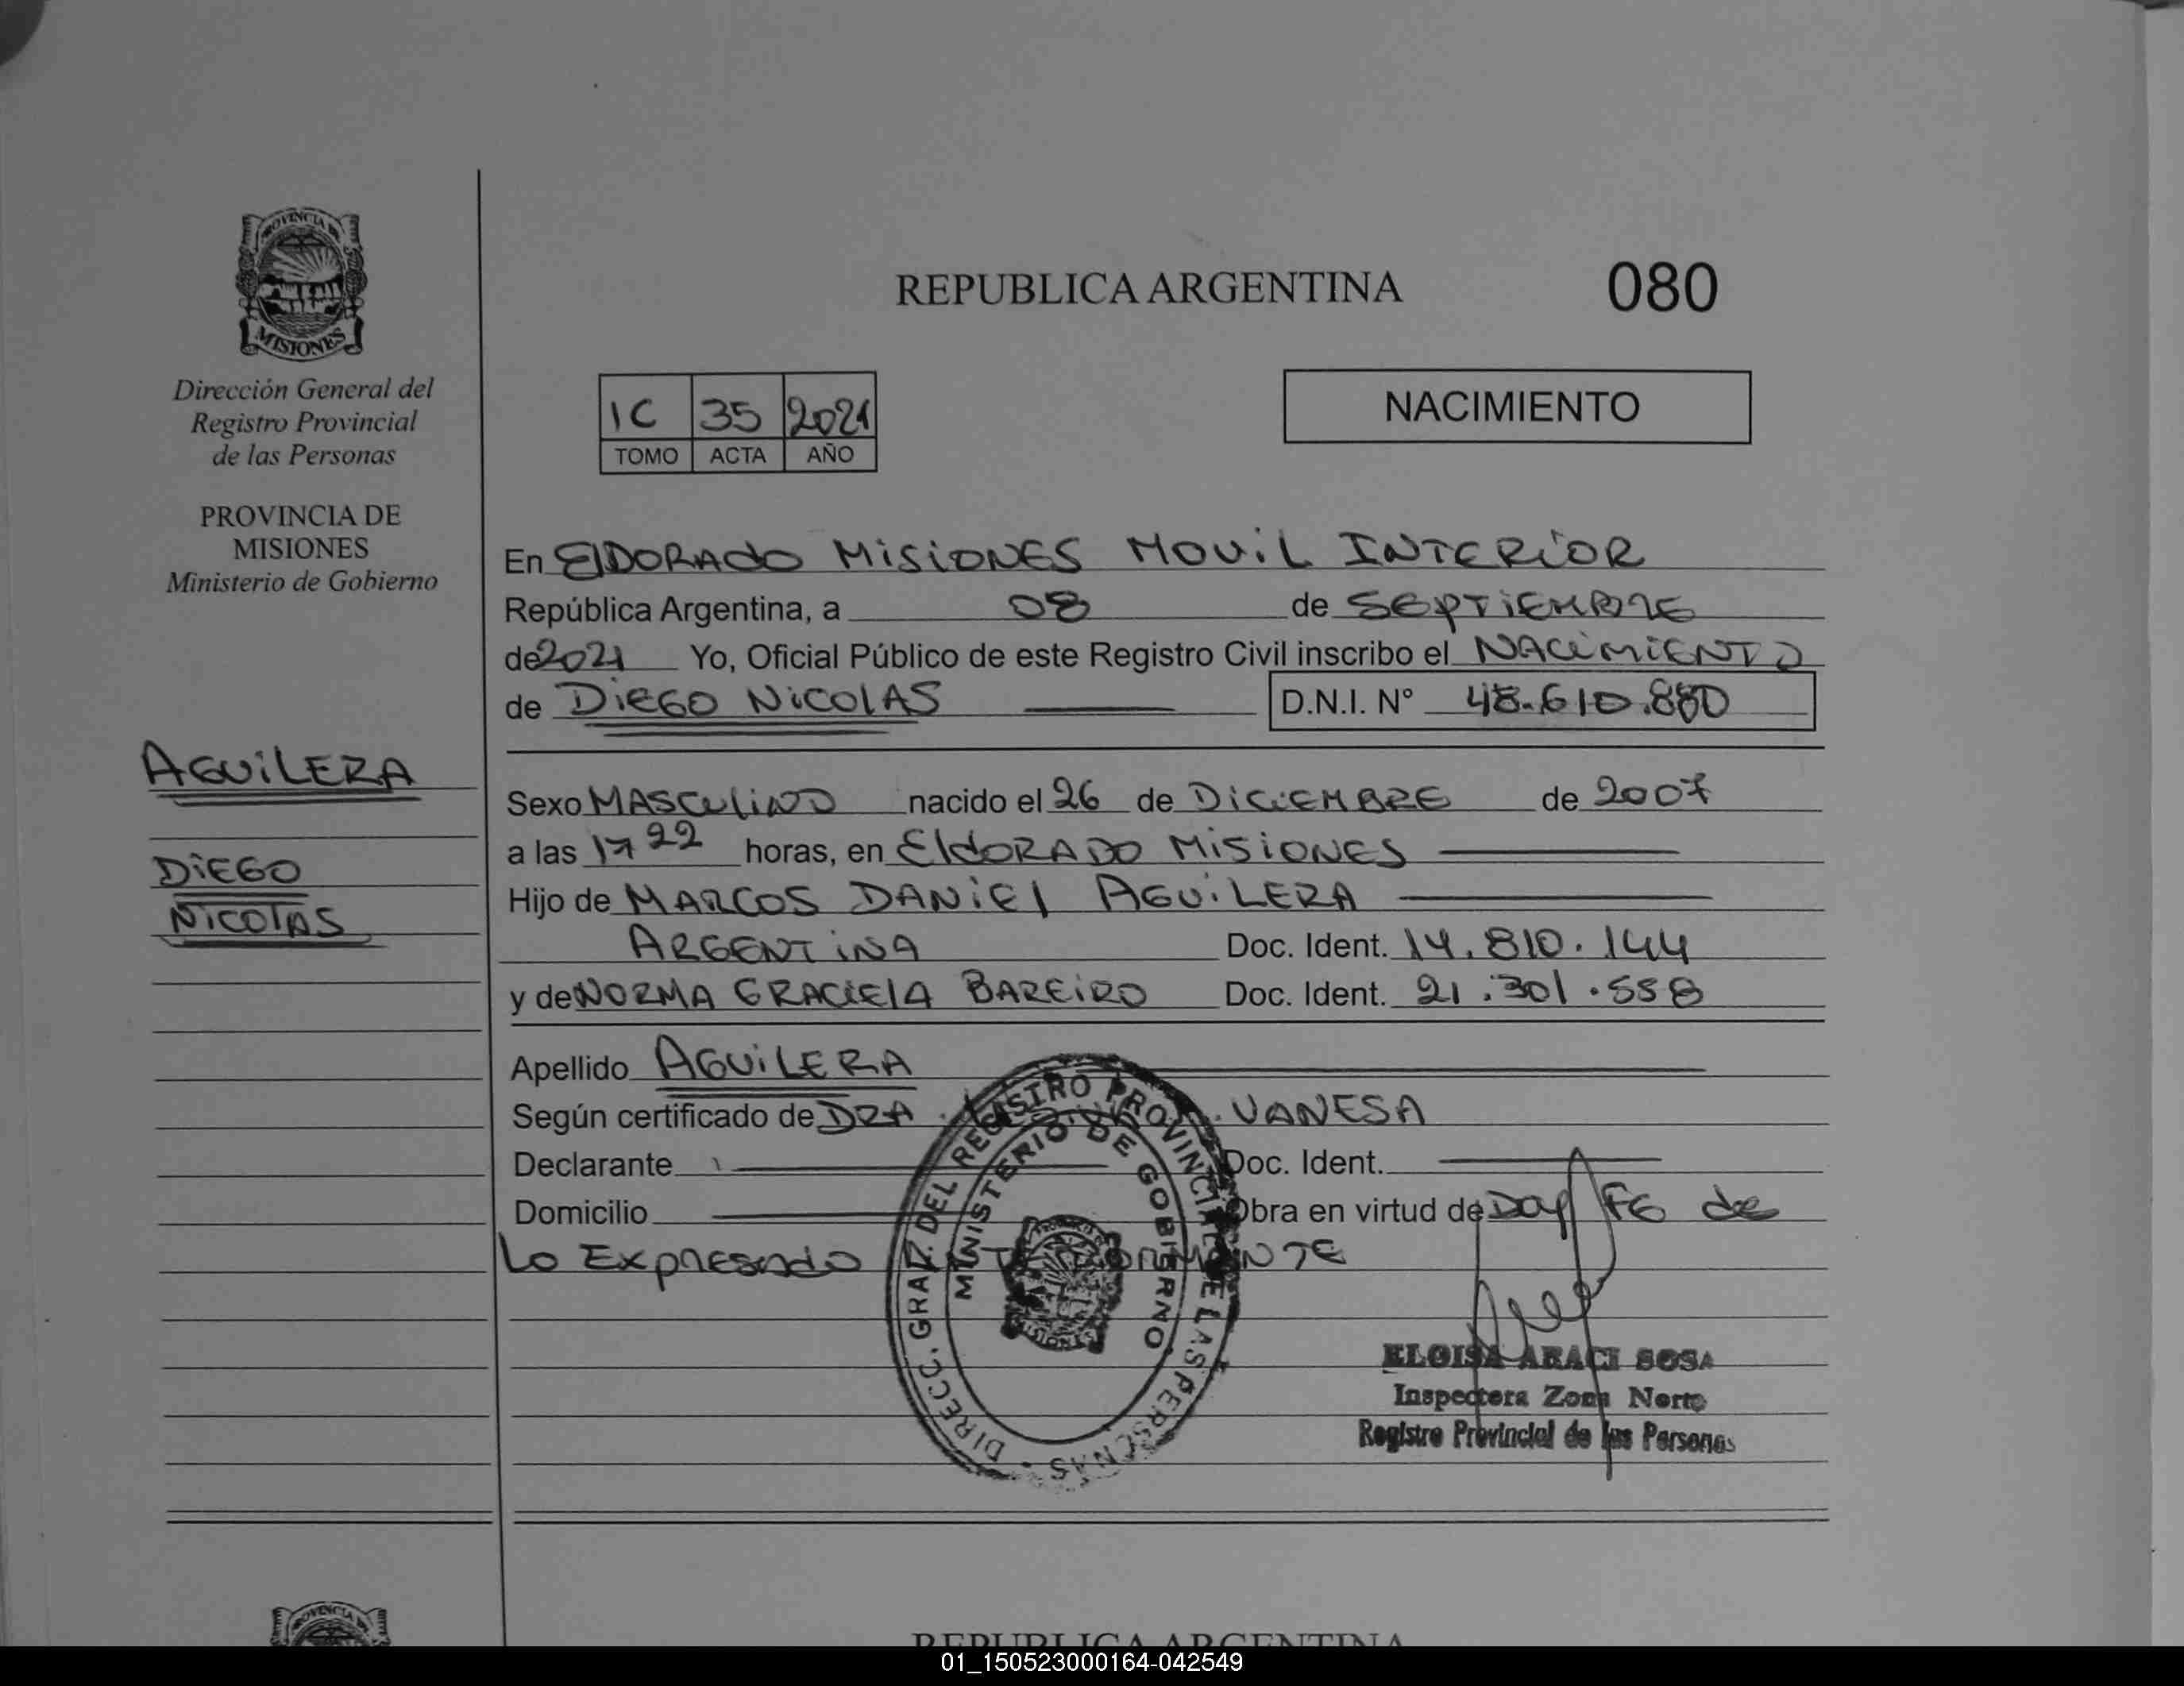 PROVINCIA DE
MISIONES
Dirección General del
Registro Provincial
de las Personas
PROVINCIA DE
MISIONES
Ministerio de Gobierno
AGUILERA
DIEGO
NICOLAS
REPUBLICA ARGENTINA
080
IC 35 2021
TOMO ACTA AÑO
NACIMIENTO
En ELDORADO MISIONES MOVIL INTERIOR
República Argentina, a 08 de SEPTIEMBRE
de 2021 Yo, Oficial Público de este Registro Civil inscribo el NACIMIENTO
de DIEGO NICOLAS D.N.I. Nº 48.610.880
Sexo MASCULINO nacido el 26 de DICIEMBRE de 2007
a las 17 22 horas, en ELDORADO MISIONES
Hijo de MARCOS DANIEL AGUILERA
ARGENTINA Doc. Ident. 14.810.144
y de NORMA GRACIELA BAREIRO Doc. Ident. 21.301.558
Apellido AGUILERA
Según certificado de DRA. VANESA
Declarante Doc. Ident.
Domicilio Obra en virtud de Doy FE de
Lo Expresado
DIRECC. GRAL. DEL REGISTRO PROVINCIAL DE LAS PERSONAS
MINISTERIO DE GOBIERNO
MISIONES
ELOISA ARACI SOSA
Inspectora Zona Norte
Registro Provincial de las Personas
PROVINCIA
REPUBLICA ARGENTINA
01_150523000164-042549